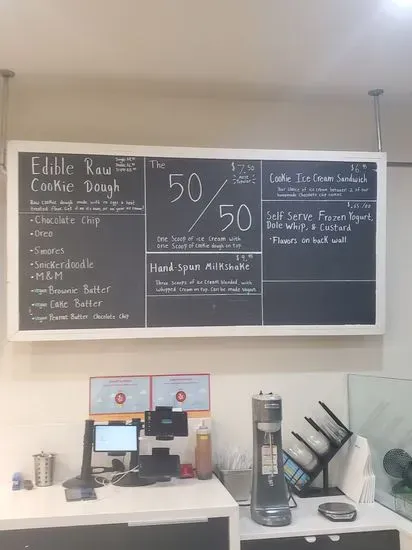 Edible Raw
Cookie Dough
Raw cookie dough made with no eggs & heat
treated flour. Eat it on its own, or on your ice cream!
• Chocolate Chip
• Oreo
• S'mores
• Snickerdoodle
• M&M
• vegan Brownie Batter
• vegan Cake Batter
• vegan Peanut Butter Chocolate Chip
The
50/50
$7.50
most
popular
One Scoop of ice cream with
one scoop of cookie dough on top.
Hand-Spun Milkshake
Three scoops of ice cream blended, with
whipped cream on top. Can be made vegan.
Cookie Ice Cream Sandwich
Your choice of ice cream between 2 of our
homemade chocolate chip cookies.
$.65/oz
Self Serve Frozen Yogurt,
Dole Whip, & Custard
• Flavors on back wall